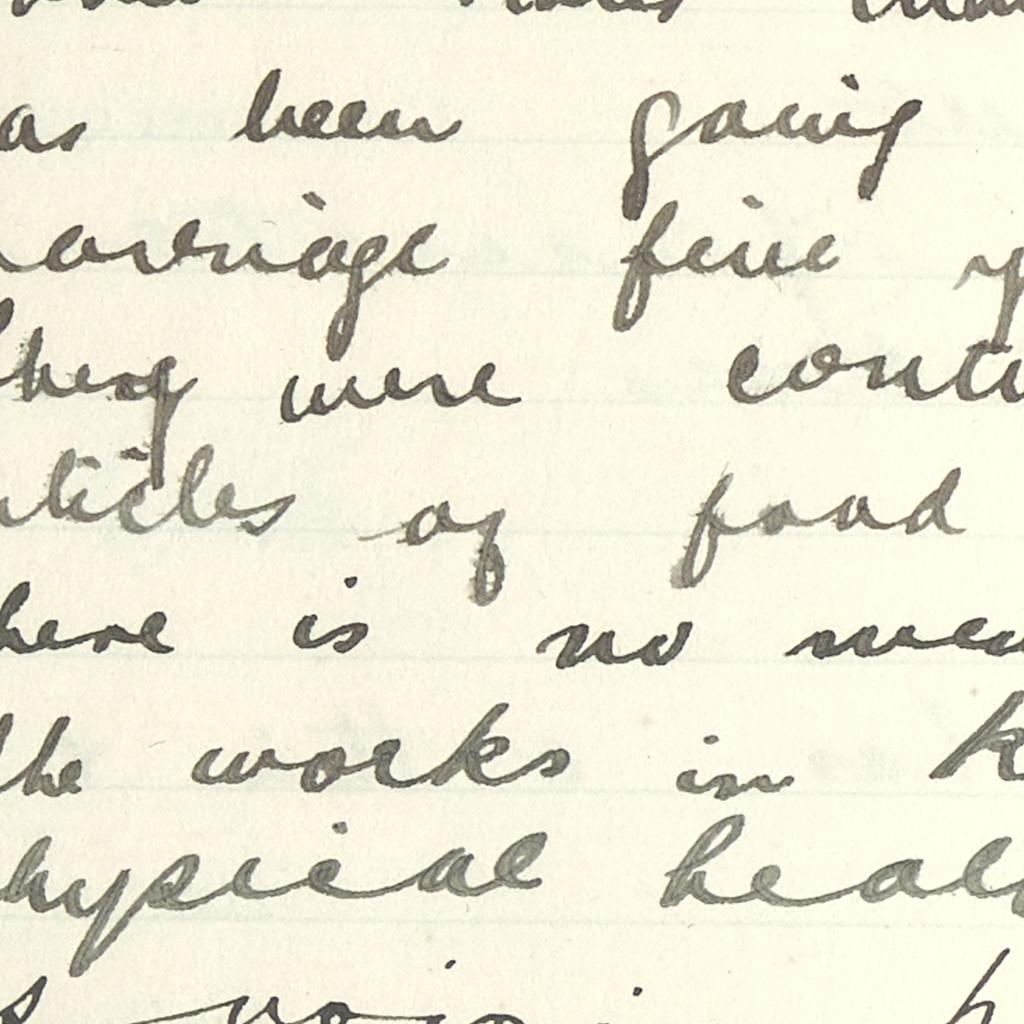 as been going
arriage five y
they were conti
rticles of food
here is no men
the works in K
hysical heal